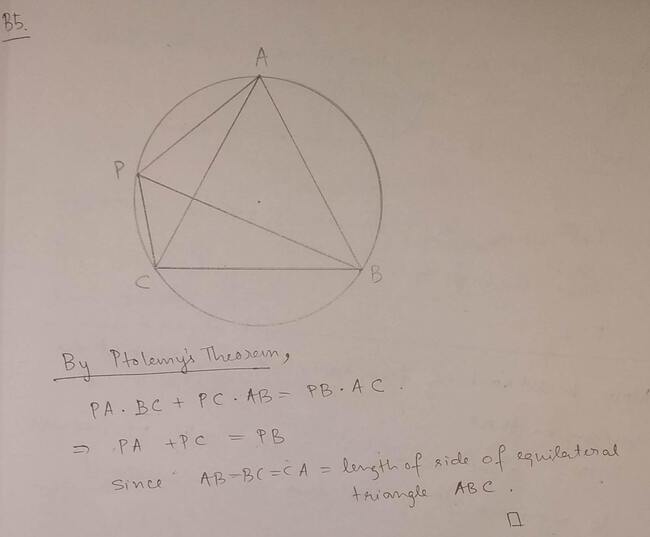 B5.
A
P
C
B
By Ptolemy's Theorem,
PA . BC + PC . AB = PB . AC .
⇒ PA + PC = PB
Since AB = BC = CA = length of side of equilateral
triangle ABC .
□